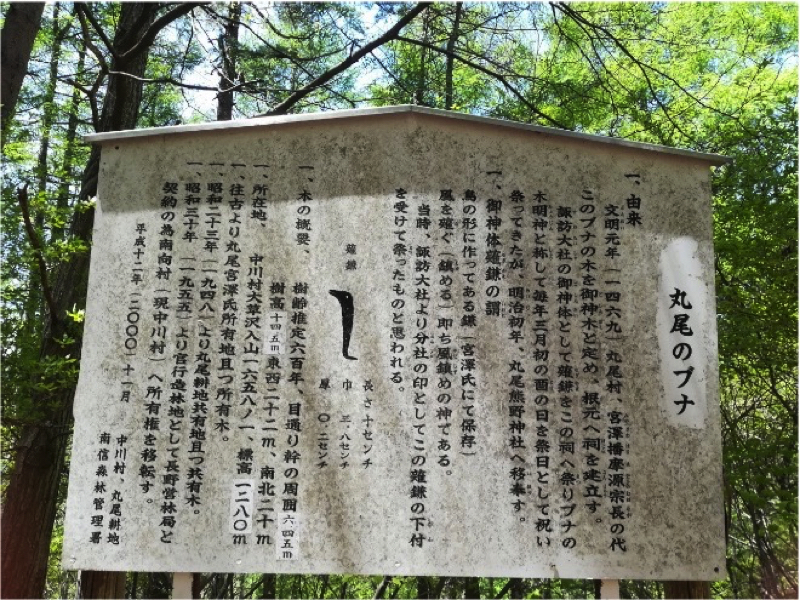 丸尾のブナ
一、由来
文明元年(一四六九)丸尾村、宮澤播摩源宗長の代
このブナの木を御神木と定め、根元へ祠を建立す。
諏訪大社の御神体として薙鎌をこの祠へ祭りブナの
木明神と称して毎年三月初の酉の日を祭日として祝い
祭ってきたが、明治初年、丸尾熊野神社へ移奉す。
一、御神体薙鎌の謂
鳥の形に作ってある鎌(宮澤氏にて保存)
風を薙ぐ(鎮める)即ち風鎮めの神である。
当時、諏訪大社より分社の印としてこの薙鎌の下付
を受けて祭ったものと思われる。
薙鎌
長さ 十センチ
巾 三.八センチ
厚 〇.二センチ
一、木の概要、
樹齢推定六百年、目通り幹の周囲六.四五m
樹高十四.五m東西二十二m、南北二十m
一、所在地、
中川村大草沢入山一六五八ノ一、標高一二八〇m
一、往古より丸尾宮澤氏所有地且つ所有木。
一、昭和二十三年(一九四八)より丸尾耕地共有地且つ共有木。
一、昭和三十年(一九五五)より官行造林地として長野営林局と
契約の為南向村(現中川村)へ所有権を移転す。
平成十二年(二〇〇〇)十一月
中川村、丸尾耕地
南信森林管理署